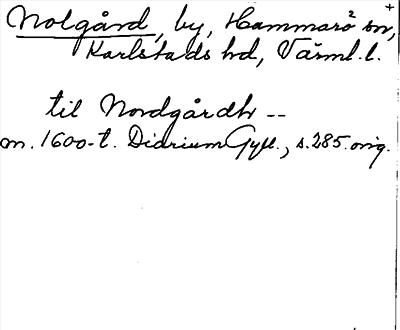 Nolgård, by, Hammarö sn,
Karlstads hd, Värml. l.
til Nordgårdh --
m. 1600-t. Diarium Gyll., s. 285. orig.